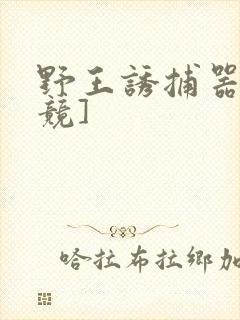 野王誘捕器
競]
哈拉布拉鄉加